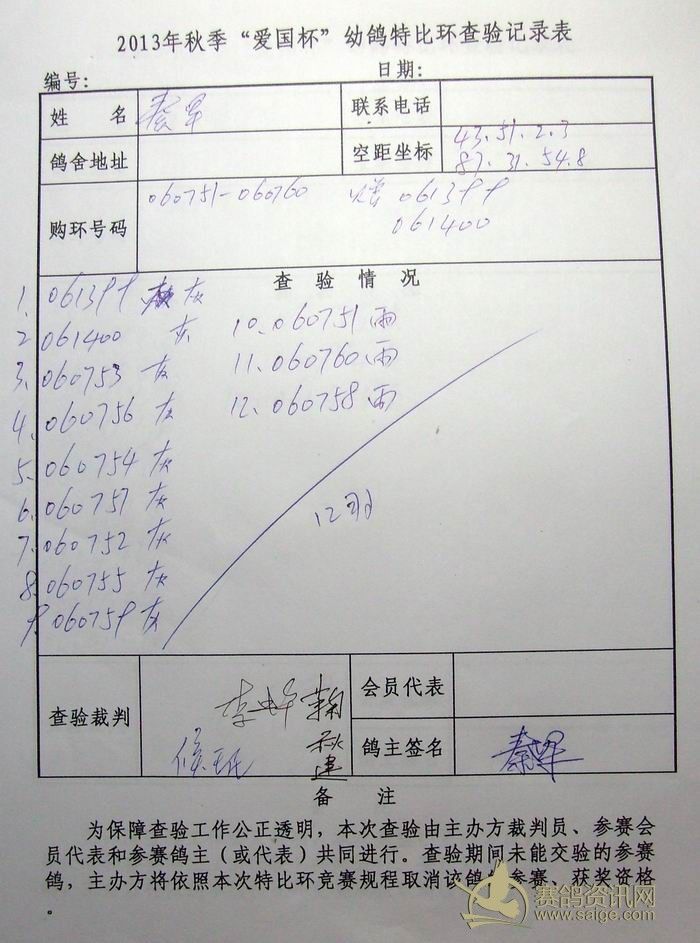 2013年秋季“爱国杯”幼鸽特比环查验记录表
编号: 日期:
姓 名 秦军 联系电话
鸽舍地址 空距坐标 43.51.2.3
87.31.54.8
购环号码 060751-060760 赠 061399
061400
查 验 情 况
1. 061399 灰
2 061400 灰 10.060751雨
3.060753 灰 11.060760雨
4.060756 灰 12.060758雨
5.060754 灰
6.060757 灰 12羽
7.060752 灰
8.060755 灰
9.060759 灰
查验裁判 会员代表
鸽主签名 秦军
备 注
为保障查验工作公正透明，本次查验由主办方裁判员、参赛会
员代表和参赛鸽主（或代表）共同进行。查验期间未能交验的参赛
鸽，主办方将依照本次特比环竞赛规程取消该鸽的参赛、获奖资格
。
赛鸽资讯网
www.saige.com